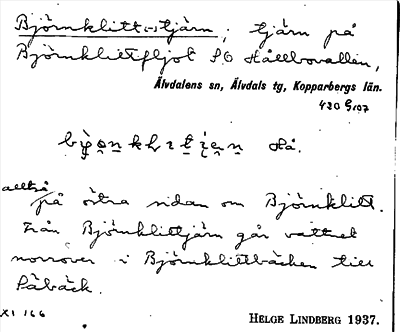 Björnklitt-tjärn, tjärn på
Björnklittfljot SO Hållbovallen,
Älvdalens sn, Älvdals tg, Kopparbergs län.
420 G 107
Hå.
alltså
på östra sidan om Björnklitt.
Från Björnklittjärn går vattnet
norröver i Björnklittbäcken till
Påbäck.
XI 166 HELGE LINDBERG 1937.